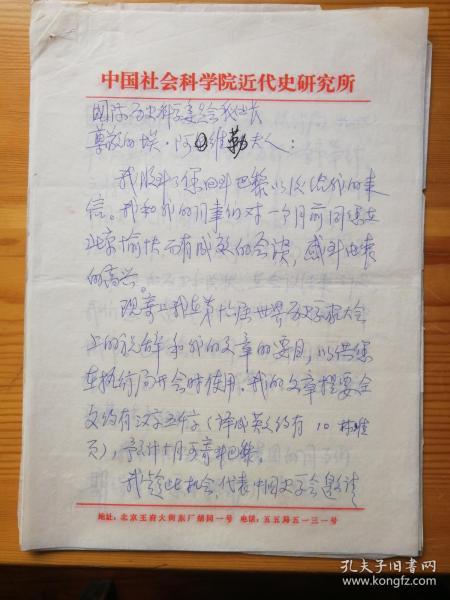 中国社会科学院近代史研究所
国际历史科学委员会秘书长
尊敬的埃·阿维勒夫人：
我收到了您回到巴黎以后给我的来
信。我和我的同事们对一个月前同您在
北京愉快而有成效的会谈，感到由衷
的高兴。
现寄上我在第十六届世界历史学家大会
上的致辞和我的文章的要目，以供您
在执行局开会时使用。我的文章提要全
文约有汉字五千字（译成英文约有10
页），予计十月可寄到巴黎。
我趁此机会，代表中国史学会邀请
地址：北京王府大街东厂胡同一号 电话：五五局五一三一号
孔夫子旧书网
kongfz.com